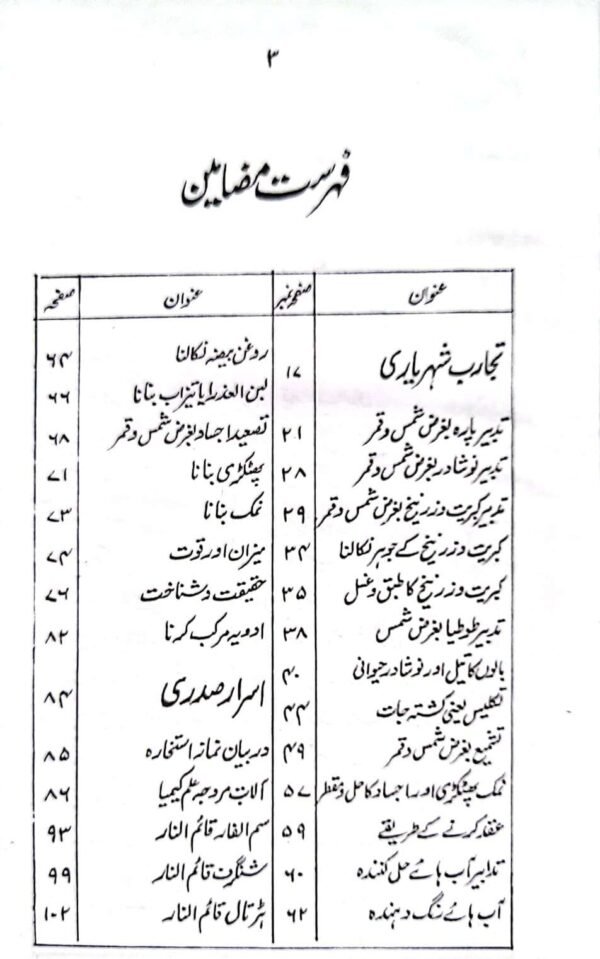 ۳
فہرست مضامین
عنوان صفحہ نمبر
تجارب شہریاری ۱۷
تدبیر پارہ بغرض شمس و قمر ۲۱
تدبیر نوشادر بغرض شمس و قمر ۲۸
تدبیر کبریت و زرنیخ بغرض شمس و قمر ۲۹
کبریت و زرنیخ کے جوہر نکالنا ۳۴
کبریت و زرنیخ کا طبق و غسل ۳۵
تدبیر طوطیا بغرض شمس ۳۸
بالوں کا تیل اور نوشادر حیوانی ۴۰
تکلیس یعنی کشتہ جات ۴۴
تشمیع بغرض شمس و قمر ۴۹
نمک پھٹکڑی اور اجساد کا حل و تقطر ۵۷
عقد کرنے کے طریقے ۵۹
تدابیر آب ہائے حل کنندہ ۶۰
آب ہائے رنگ دہندہ ۶۲
عنوان صفحہ
روغن بیضہ نکالنا ۶۴
لبن العذرا یا تیزاب بنانا ۶۶
تصعید اجساد بغرض شمس و قمر ۶۸
پھٹکڑی بنانا ۷۱
نمک بنانا ۷۳
میزان اور قوت ۷۴
حقیقت و شناخت ۷۶
ادویہ مرکب کرنا ۸۲
اسرار صدری ۸۴
در بیان نماز استخارہ ۸۵
آلات مروجہ علم کیمیا ۸۶
سم الفار قائم النار ۹۳
شنگرف قائم النار ۹۹
ہڑتال قائم النار ۱۰۲